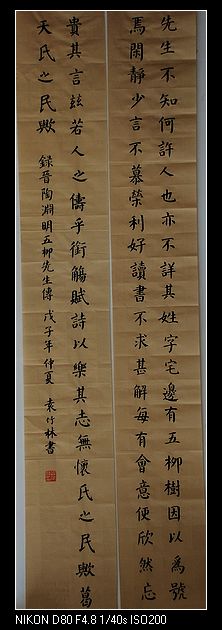 先生不知何許人也亦不詳其姓字宅邊有五柳樹因以爲號
焉閑靜少言不慕榮利好讀書不求甚解每有會意便欣然忘
貴其言茲若人之儔乎銜觴賦詩以樂其志無懷氏之民歟葛
天氏之民歟 錄晉陶淵明五柳先生傳 戊子年仲夏 袁竹林書
NIKON D80 F4.8 1/40s ISO200